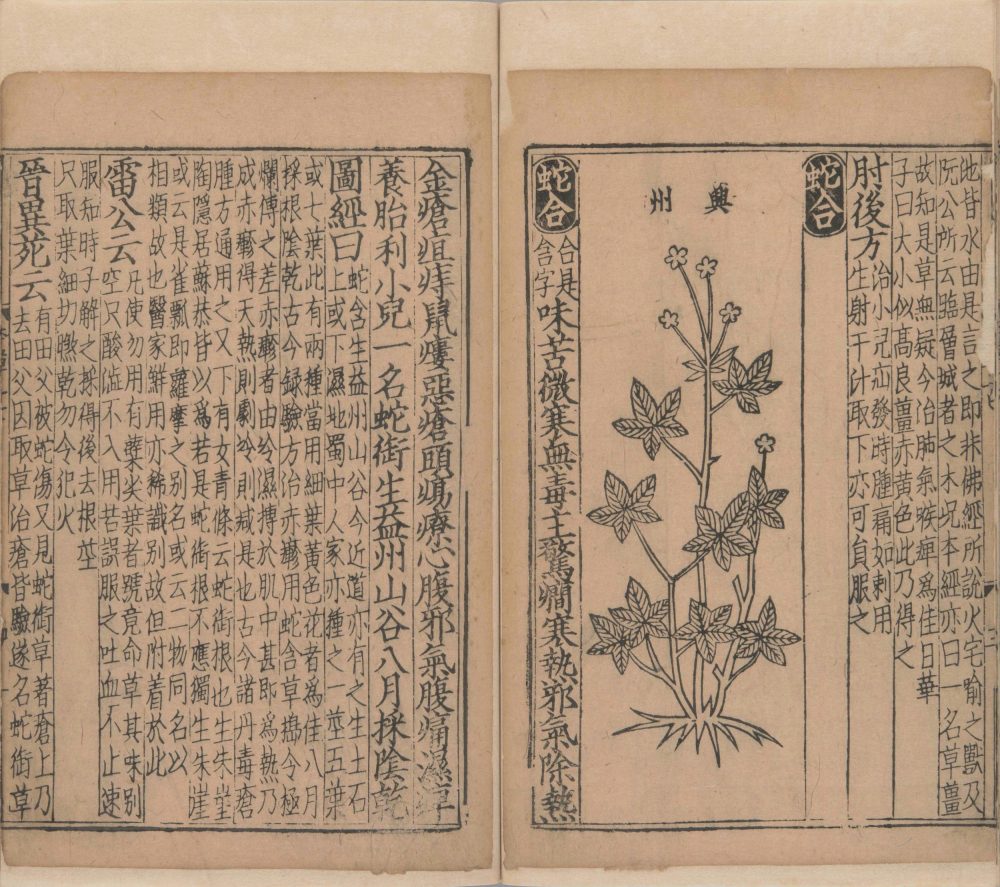 地皆水由是言之即非佛經所說火宅喻之獸及
阮公所云臨層城者之木况本經亦曰一名草薑
故知是草無疑今治肺氣喉痺爲佳日華
子曰大小似髙良薑赤黃色此乃得之
肘後方
治小兒疝發時腫痛如刺用
生射干汁取下亦可貟服之
蛇合
興州
蛇合
合是
含字
味苦微寒無毒主驚癇寒熱邪氣除熱
金瘡疽痔鼠瘻惡瘡頭瘍療心腹邪氣腹痛濕痺
養胎利小兒一名蛇銜生益州山谷八月採隂乾
圖經曰
蛇含生益州山谷今近道亦有之生土石
上或下濕地蜀中人家亦種之一莖五葉
或七葉此有兩種當用細葉黃色花者爲佳八月
採根隂乾古今録驗方治赤㿃用蛇含草搗令極
爛傅之差赤㿃者由冷濕搏於肌中甚即爲熱乃
成赤㿃得天熱則劇冷則減是也古今諸丹毒瘡
腫方通用之又下有女青條云蛇銜根也生朱崖
陶隱居蘇恭皆以爲若是蛇銜根不應獨生朱崖
或云是雀瓢即蘿摩之別名或云二物同名以
相類故也醫家鮮用亦稀識別故但附着於此
雷公云
凡使勿用有櫱尖葉者號竟命草其味別
空只酸澁不入用若誤服之吐血不止速
服知時子解之採得後去根莖
只取葉細切㬠乾勿令犯火
晉異死云
有田父被蛇傷又見蛇銜草著瘡上乃
去田父因取草治瘡皆驗遂名蛇銜草